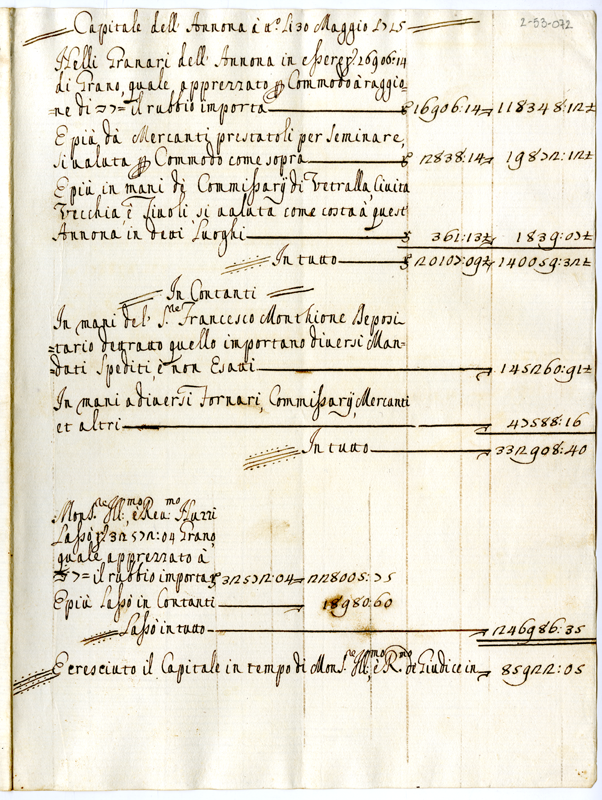 Capitale dell' Annona à tt.º li 30 Maggio 1715
2-53-072
Nelli Granari dell' Annona in essere R 16906:14
di Grano, quale apprezzato p Commodo à raggio=
=ne di 7= il rubbio importa R 16906:14 118348:12½
E più da Mercanti prestatoli per Seminare,
si valuta p Commodo come sopra R 2838:14 19872:12½
E più in mani di Commissarij di Vetralla, Civita
Vecchia, e Tivoli si valuta come costa à quest'
Annona in detti Luoghi R 361:13½ 1839:07½
In tutto R 20107:09½ 140059:32½
In Contanti
In mani del S.re Francesco Monthione Deposi=
=tario detratto quello importano diversi Man=
=dati Spediti, e non Esatti 145260:91½
In mani a diversi Fornari, Commissarij, Mercanti
et altri 47588:16
In tutto 332908:40
Mons.re Ill.mo e Rev.mo Nuzzi
Lassò R 32572:04 Grano,
quale apprezzato à
7= il rubbio importa R 32572:04 228005:75
E più Lassò in Contanti 18980:60
Lassò in tutto 246986:35
E cresciuto il Capitale in tempo di Mons.re Ill.mo e R.mo de Giudice in 85922:05